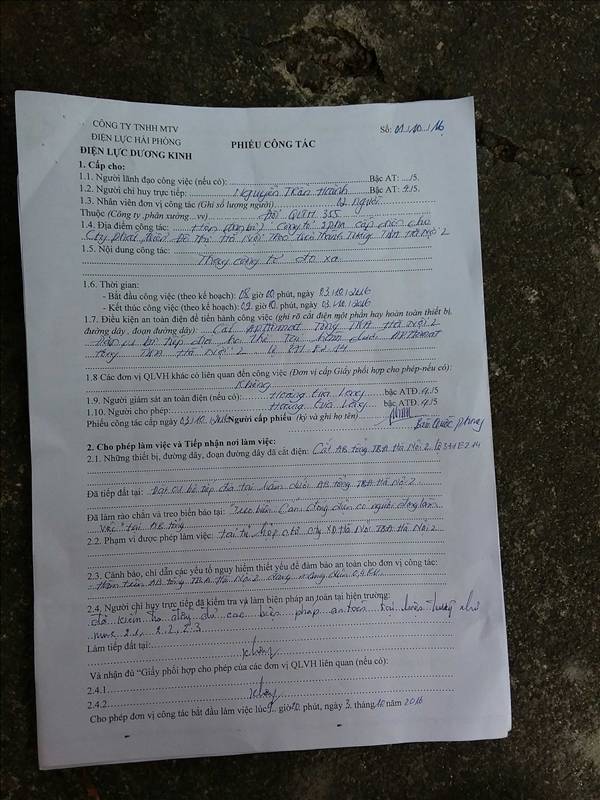 CÔNG TY TNHH MTV
ĐIỆN LỰC HẢI PHÒNG
ĐIỆN LỰC DƯƠNG KINH
PHIẾU CÔNG TÁC
Số: 01/10/16
1. Cấp cho:
1.1. Người lãnh đạo công việc (nếu có): Bậc AT: .../5.
1.2. Người chỉ huy trực tiếp: Nguyễn Trần Hoành Bậc AT: 4/5.
1.3. Nhân viên đơn vị công tác (Ghi số lượng người) 02 người
Thuộc (Công ty ,phân xưởng...vv) Đội QLTH 355
1.4. Địa điểm công tác: công tơ cấp điện cho
Cty phát triển Đô Thị Hà Nội TBA Hà Nội 2
1.5. Nội dung công tác:
Thay công tơ đo xa
1.6. Thời gian:
- Bắt đầu công việc (theo kế hoạch): 08 giờ 00 phút, ngày 03/10/2016
- Kết thúc công việc (theo kế hoạch): 09 giờ 00 phút, ngày 03/10/2016
1.7. Điều kiện an toàn điện để tiến hành công việc (ghi rõ cắt điện một phần hay hoàn toàn thiết bị,
đường dây , đoạn đường dây): Cắt Aptomat Tổng TBA Hà Nội 2
tiếp địa hạ thế Tại hàm dưới APtomat
tổng TBA Hà Nội 2
1.8 Các đơn vị QLVH khác có liên quan đến công việc (Đơn vị cấp Giấy phối hợp cho phép-nếu có):
Không
1.9. Người giám sát an toàn điện (nếu có): Hoàng bậc ATĐ 4/5
1.10. Người cho phép: Hoàng bậc ATĐ 4/5
Phiếu công tác cấp ngày 03/10/2016 Người cấp phiếu (ký và ghi họ tên)
Bùi Quốc Phong
2. Cho phép làm việc và Tiếp nhận nơi làm việc:
2.1. Những thiết bị, đường dây, đoạn đường dây đã cắt điện: Cắt AB tổng TBA Hà Nội 2
Đã tiếp đất tại: bộ tiếp địa tại hàm dưới AB tổng TBA Hà Nội 2
Đã làm rào chắn và treo biển báo tại: Treo biển Cấm đóng điện có người đang làm
việc tại AB tổng
2.2. Phạm vi được phép làm việc: tại tủ hộp cty XD Hà Nội TBA Hà Nội 2
2.3. Cảnh báo, chỉ dẫn các yếu tố nguy hiểm thiết yếu để đảm bảo an toàn cho đơn vị công tác:
hàm trên AB tổng TBA Hà Nội 2 đang mang điện 0,4KV
2.4. Người chỉ huy trực tiếp đã kiểm tra và làm biện pháp an toàn tại hiện trường:
đã kiểm tra đầy đủ các biện pháp an toàn tại hiện trường như
mục 2.1, 2.2, 2.3
Làm tiếp đất tại:
không
Và nhận đủ “Giấy phối hợp cho phép của các đơn vị QLVH liên quan (nếu có):
2.4.1
2.4.2 không
Cho phép đơn vị công tác bắt đầu làm việc lúc giờ phút, ngày 3 tháng 10 năm 2016